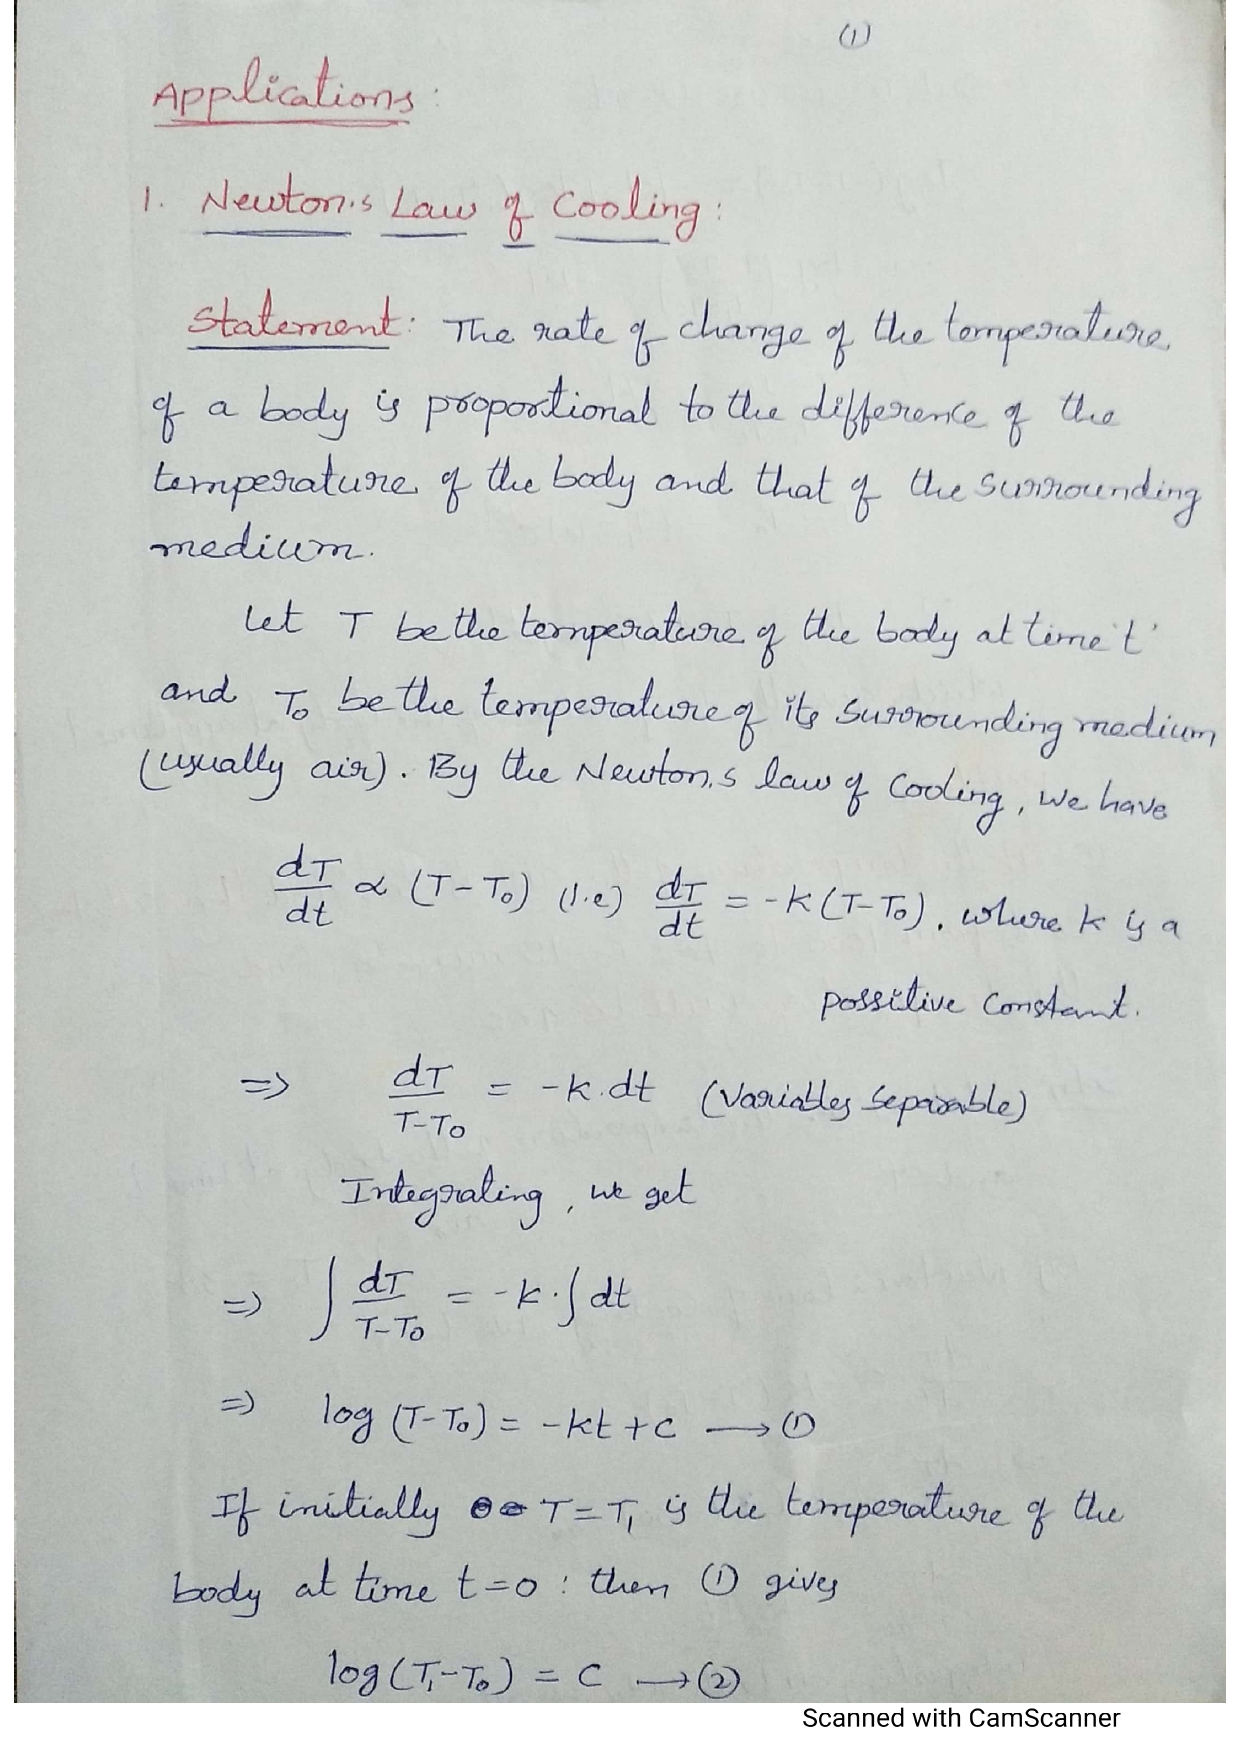 (1)
Applications:
1. Newton's Law of Cooling:
Statement: The rate of change of the temperature
of a body is proportional to the difference of the
temperature of the body and that of the surrounding
medium.
Let T be the temperature of the body at time 't'
and T₀ be the temperature of its surrounding medium
(usually air). By the Newton's law of cooling, we have
dT/dt ∝ (T-T₀) (i.e) dT/dt = -k(T-T₀). where k is a
possitive constant.
=> dT/T-T₀ = -k.dt (Variables Separable)
Integrating, we get
=> ∫ dT/T-T₀ = -k.∫dt
=> log (T-T₀) = -kt+c ⟶ ①
If initially T=T₁ is the temperature of the
body at time t=0: then ① gives
log(T₁-T₀) = c ⟶ ②
Scanned with CamScanner